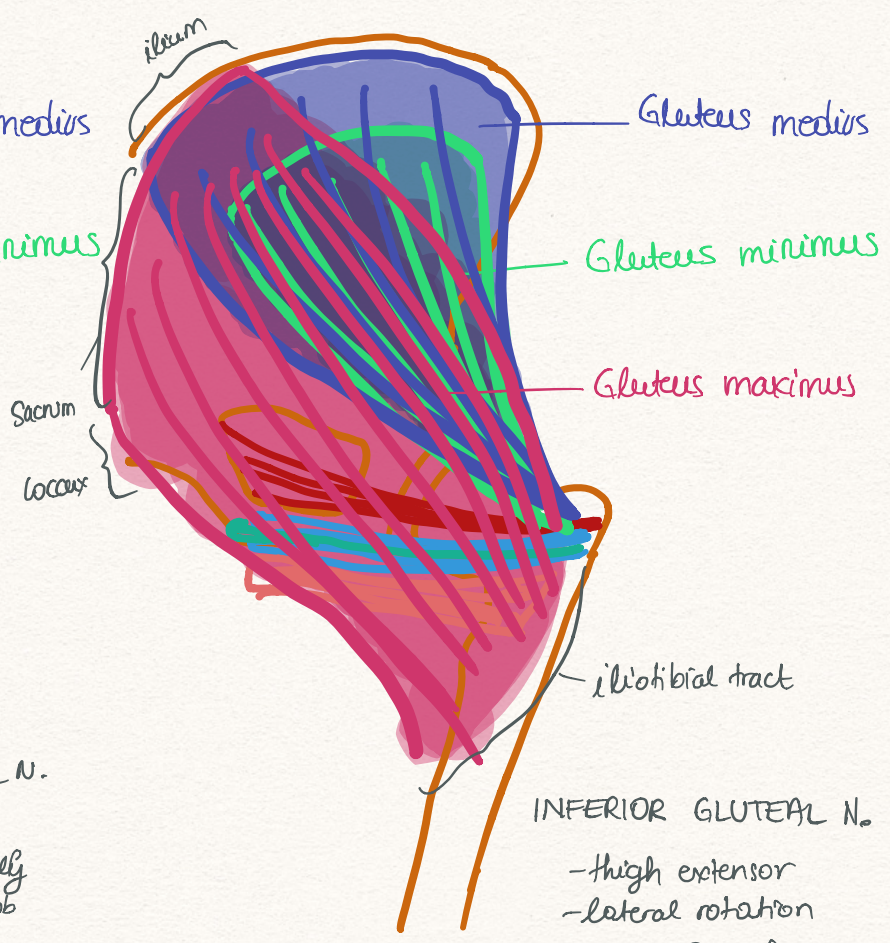 ilium
medius
Gluteus medius
nimus
Gluteus minimus
Gluteus maximus
Sacrum
Coccux
iliotibial tract
N.
INFERIOR GLUTEAL N.
-thigh extensor
-lateral rotation